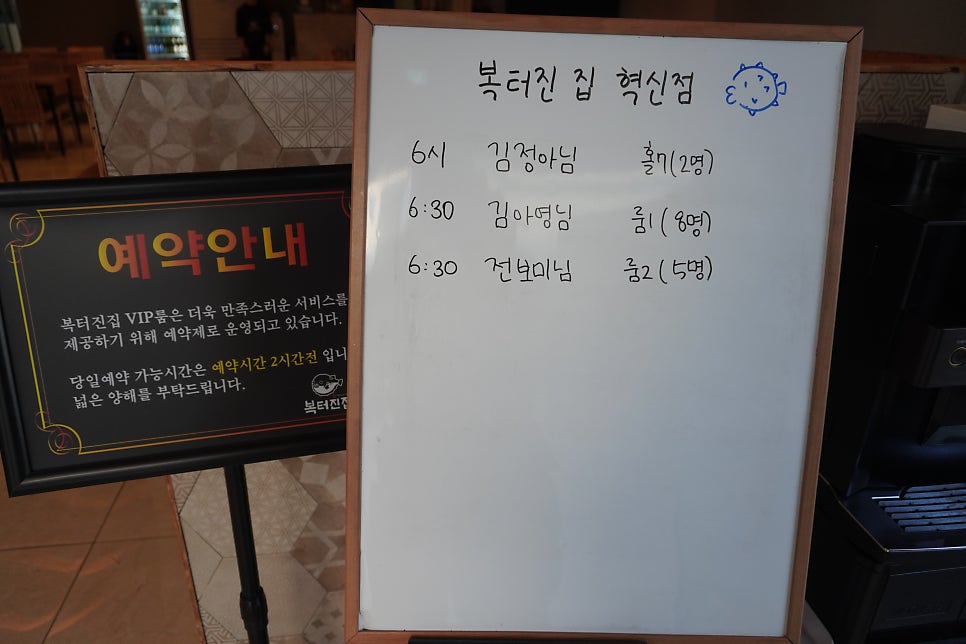 복터진 집 혁신점
6시 김정아님 홀7(2명)
6:30 김아영님 룸1(8명)
6:30 전보미님 룸2(5명)
예약안내
복터진집 VIP룸은 더욱 만족스러운 서비스를
제공하기 위해 예약제로 운영되고 있습니다.
당일예약 가능시간은 예약시간 2시간전 입니
넓은 양해를 부탁드립니다.
복터진집